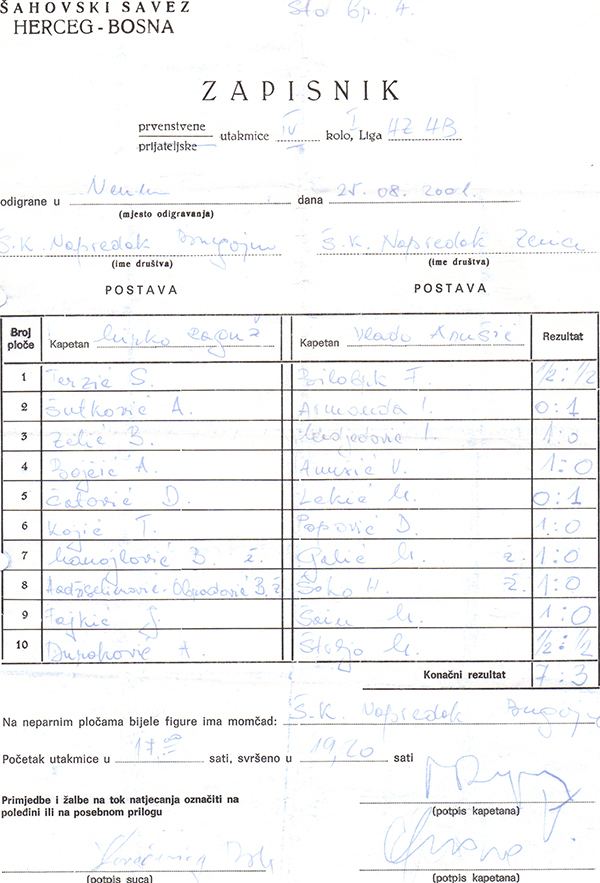 ŠAHOVSKI SAVEZ
HERCEG - BOSNA
Sto br. 4.
ZAPISNIK
prvenstvene
prijateljske
utakmice IV kolo, I Liga 4Ž 4B
odigrane u dana 25. 08. 2001.
(mjesto odigravanja)
Š.K. Napredak Bugojno Š.K. Napredak Zenica
(ime društva) (ime društva)
POSTAVA POSTAVA
Broj ploče Kapetan Kapetan Vlado Rezultat
1 Terzić S. F. 1/2 : 1/2
2 Šutković A. Armanda I. 0:1
3 Zelić B. I. 1:0
4 Bojčić A. V. 1:0
5 Čatović D. Lekić M. 0:1
6 Kojić T. Popović D. 1:0
7 Manojlović B. ž. Galić M. ž. 1:0
8 B. ž. Šoho H. ž. 1:0
9 Fajkić J. Šain M. 1:0
10 Duraković A. M. 1/2 : 1/2
Konačni rezultat 7:3
Na neparnim pločama bijele figure ima momčad: Š.K. Napredak Bugojno
Početak utakmice u 17.00 sati, svršeno u 19,20 sati
(potpis kapetana)
Primjedbe i žalbe na tok natjecanja označiti na
poleđini ili na posebnom prilogu
(potpis suca) (potpis kapetana)